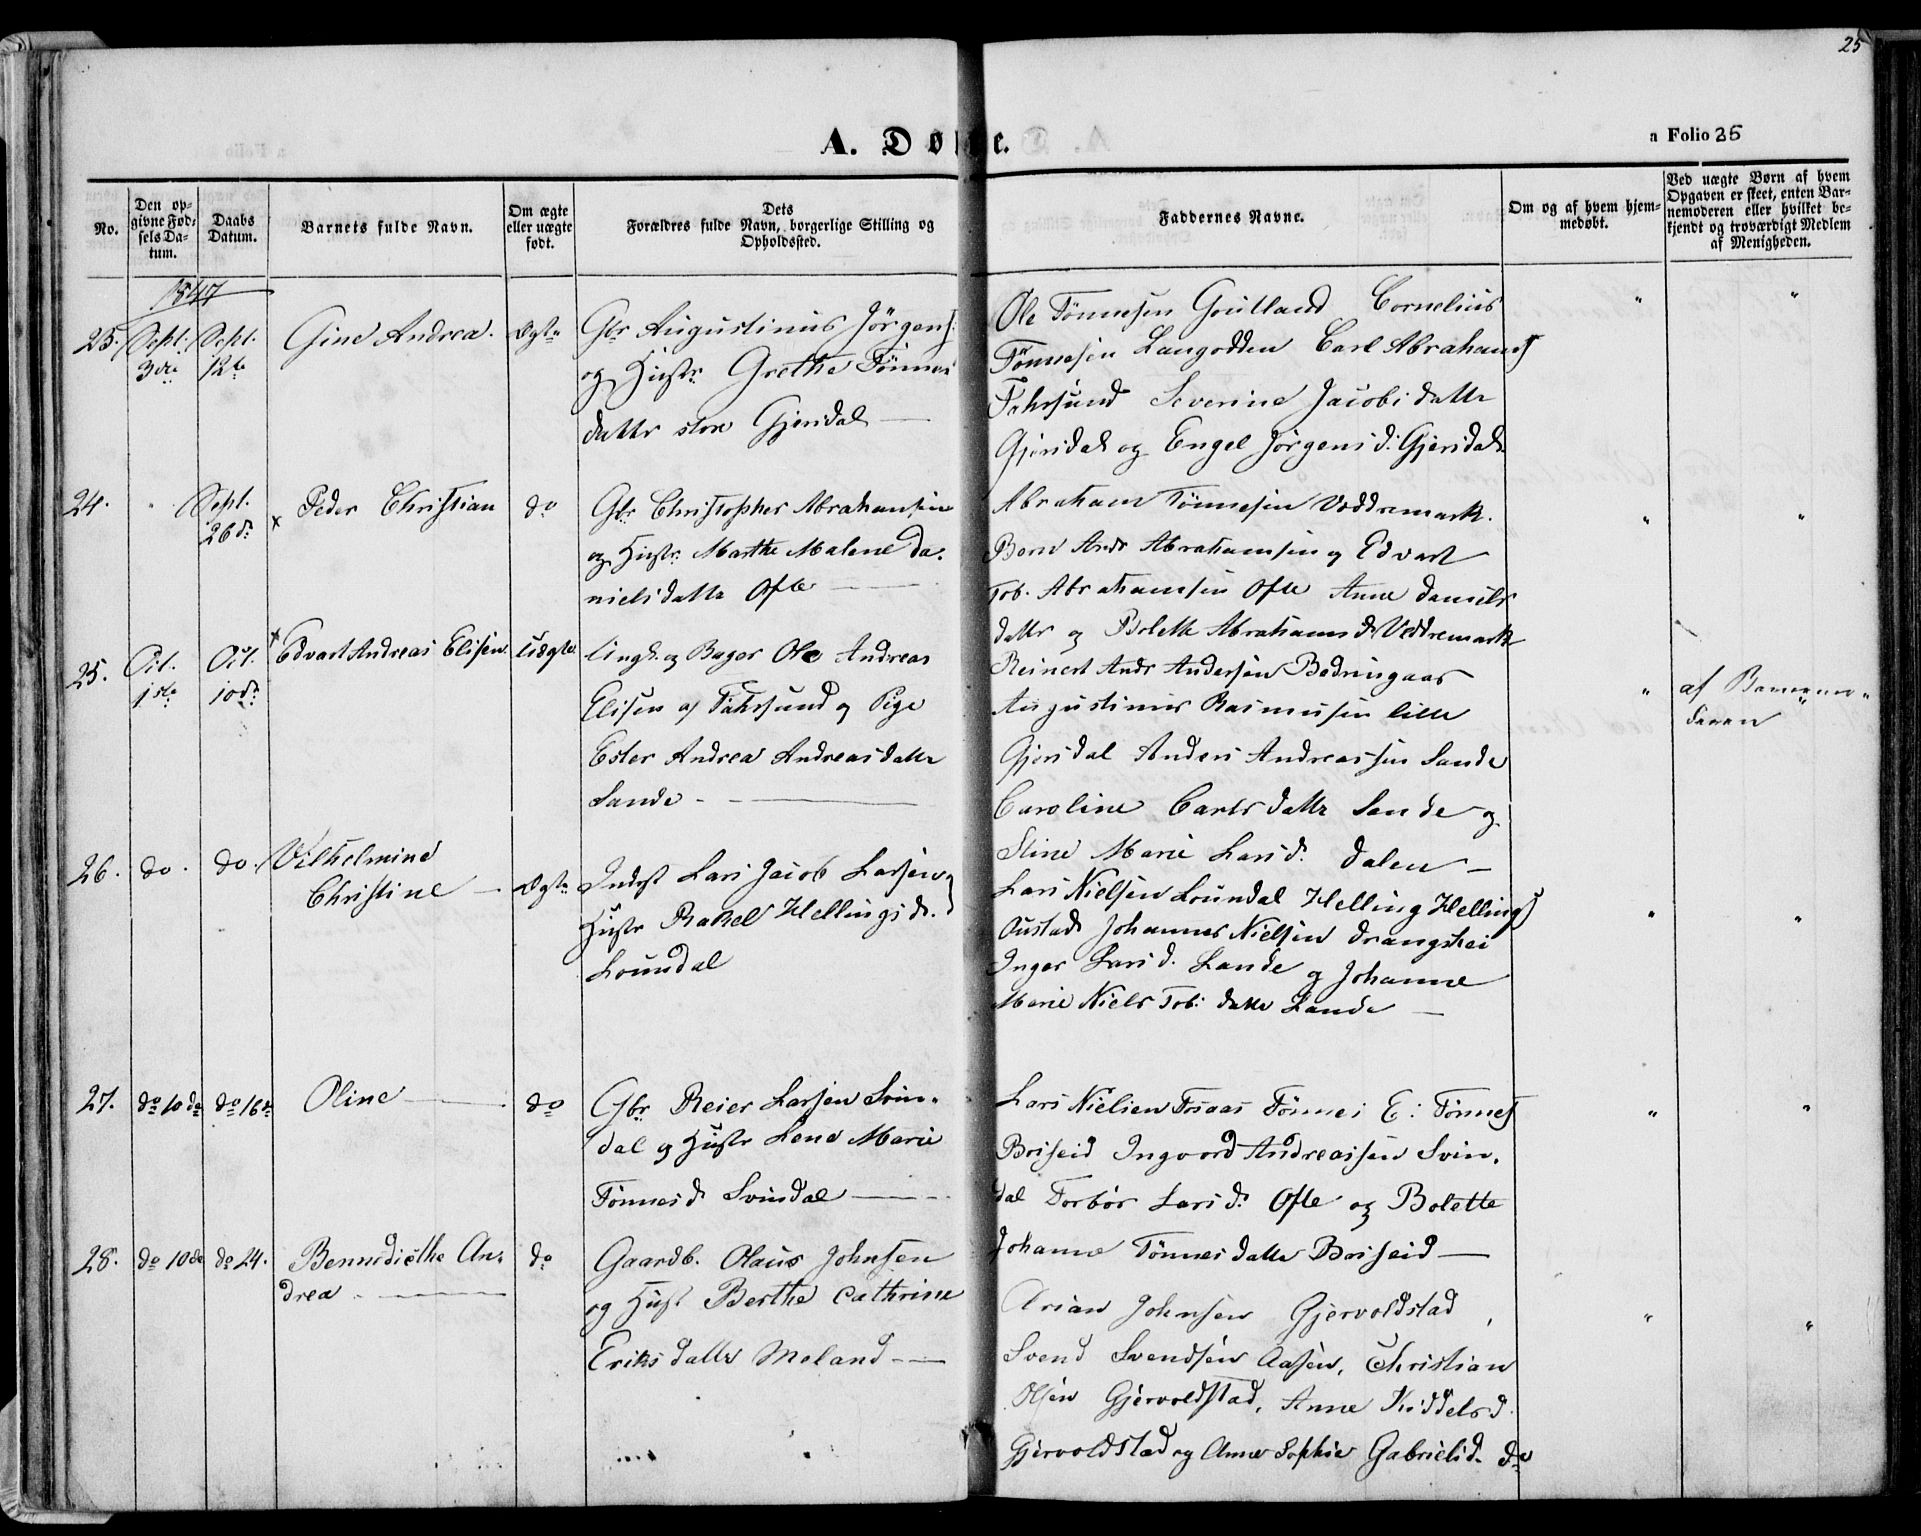 25
A. Døbte.
a Folio 25
No.
Den opgivne Fødselsdatum.
Daabs Datum.
Barnets fulde Navn.
Om ægte eller uægte født.
Dets Forældres fulde Navn, borgerlige Stilling og Opholdssted.
Faddernes Navne.
Om og af hvem hjemmedøbt.
Ved uægte Børn af hvem Opgaven er skeet, enten Barnemoderen eller hvilket bekjendt og troværdigt Medlem af Menigheden.
1847
23. Sept: 3die Sept. 12te Gine Andrea. Ægte
Gbr Augustinus Jörgens:
og Hustr Grethe Tönnes
datter store Gjersdal
Ole Tönnesen Cornelius
Tönnesen Langodden Carl Abrahams
Fahrsund Severine Jacobsdatter
Gjersdal og Engel Jörgensd: Gjersdal
24. " Sept. 26d: × Peder Christian do
Gbr Christopher Abrahamsen
og Hustr: Marthe Malene Da-
nielsdatter Ofte
Abraham Tönnesen Veddremark.
Born Andr Abrahamsen og Edvart
Tob. Abrahamsen Ofte Anne Daniels
datter og Bolette Abrahamsdr Veddremark
25. Oct. 1ste Oct. 10de × Edvart Andreas Elisen Uægte
Ungk. og Bager Ole Andreas
Elisen af Fahrsund og Pige
Ester Andrea Andreasdatter
Sande
Reinert Andr Andersen
Augustinus Rasmusen lille
Gjersdal Anders Andreassen Sande
Caroline Carlsdatter Sande og
Stine Marie Larsd. Dalen
" af Barnemo-
deren
26. do. do. Vilhelmine
Christine Ægte
Inderst Lars Jacob Larsen og
Hustr Rakel Hellingsdr.
Loundal
Lars Nielsen Loundal Helling Hellings
Austad Johannes Nielsen Drangshei
Inger Larsd. Lande og Johanne
Marie Niels Tob: datter Lande
27. do 10de do 16de Oline do
Gbr Reier Larsen Svin-
dal og Hustr Lene Marie
Tönnesd Svindal
Lars Nielsen Tönnes E: Tönnes
Briseid Ingvord Andreassen Svin-
dal Torbör Larsd: Ofte og Bolette
Johanne Tönnesdatter Briseid
28. do 10de do 24. Bennedicthe An-
drea do
Gaardb. Olaus Johnsen
og Hust Berthe Cathrine
Eriksdatter Meland
Arian Johnsen Gjervoldstad,
Svend Svendsen Aasen, Christian
Olsen Gjervoldstad, Anne Kiddelsd.
Gjervoldstad og Anne Sophie Gabrielsd. do